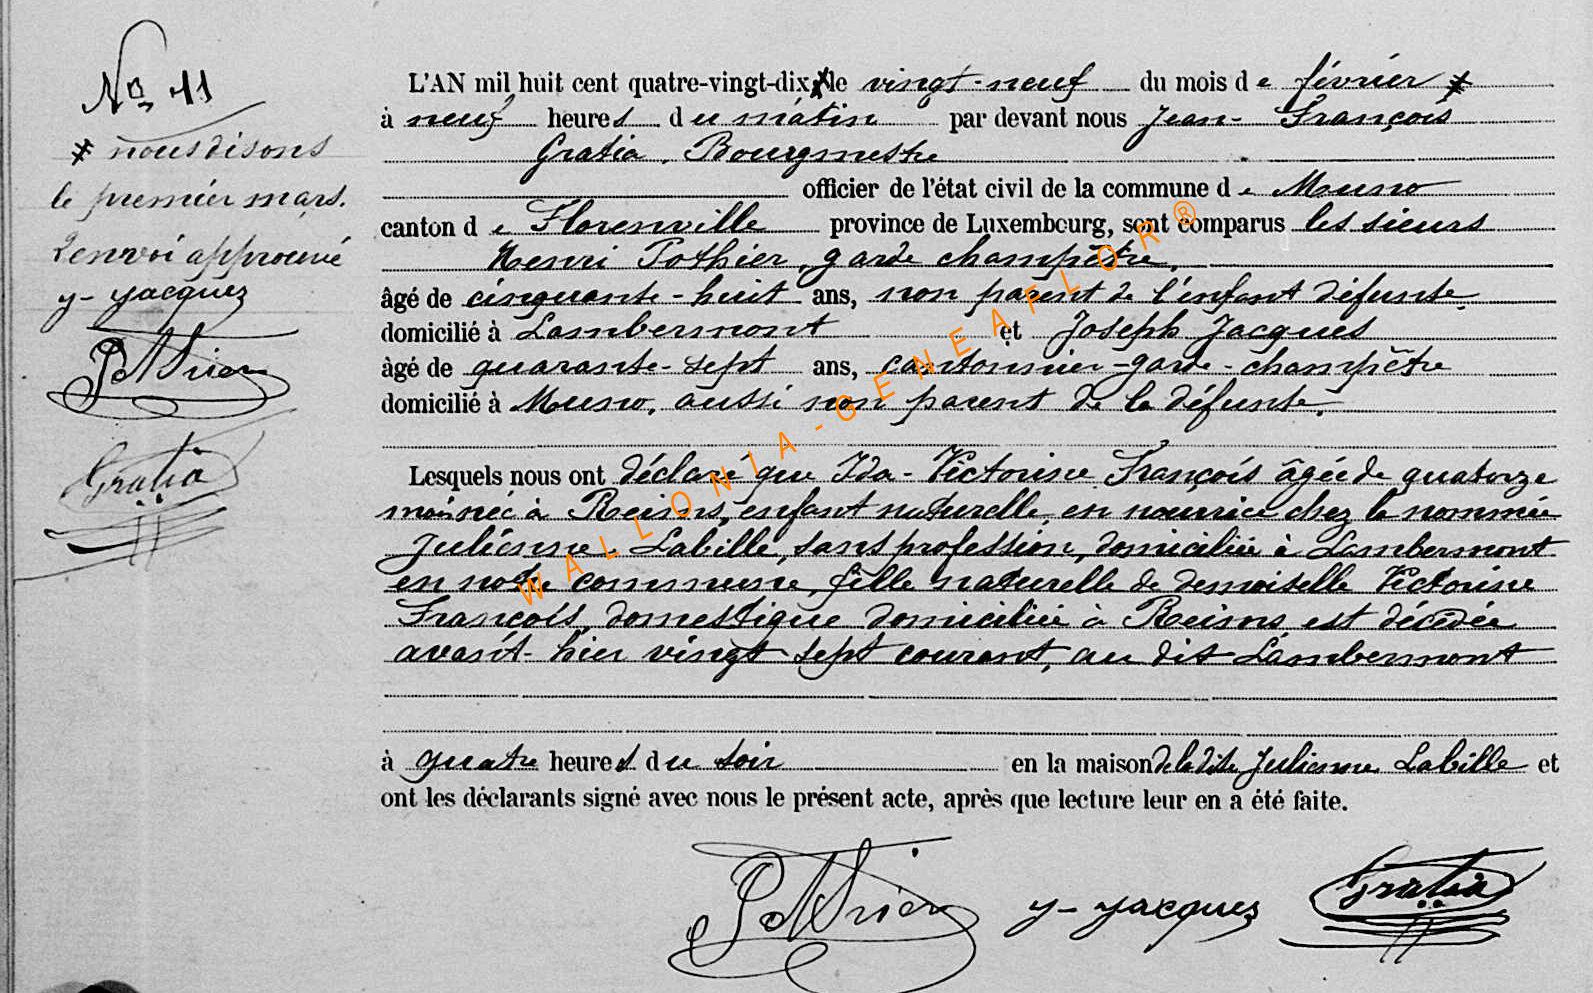 No 11
# nous disons
le premier mars.
Renvoi approuvé
y- Jacques
Pothier
Gratia
L'AN mil huit cent quatre-vingt-dix, le vingt-neuf du mois de février #
à neuf heures du matin par devant nous Jean-François
Gratia, Bourgmestre
officier de l'état civil de la commune de Muno
canton de Florenville province de Luxembourg, sont comparus les sieurs
Henri Pothier, garde champêtre,
âgé de cinquante-huit ans, non parent de l'enfant défunte,
domicilié à Lambermont et Joseph Jacques
âgé de quarante-sept ans, cantonnier-garde-champêtre
domicilié à Muno, aussi non parent de la défunte.
Lesquels nous ont déclaré que Ida-Victorine François âgée de quatorze
mois, née à Reims, enfant naturelle, en nourrice chez la nommée
Julienne Labille, sans profession, domiciliée à Lambermont
en notre commune, fille naturelle de demoiselle Victorine
François, domestique domiciliée à Reims est décédée
avant-hier vingt sept courant, au dit Lambermont
à quatre heures du soir en la maison de la dite Julienne Labille et
ont les déclarants signé avec nous le présent acte, après que lecture leur en a été faite.
Pothier y- Jacques Gratia
WALLONIA-GENEAFLOR®